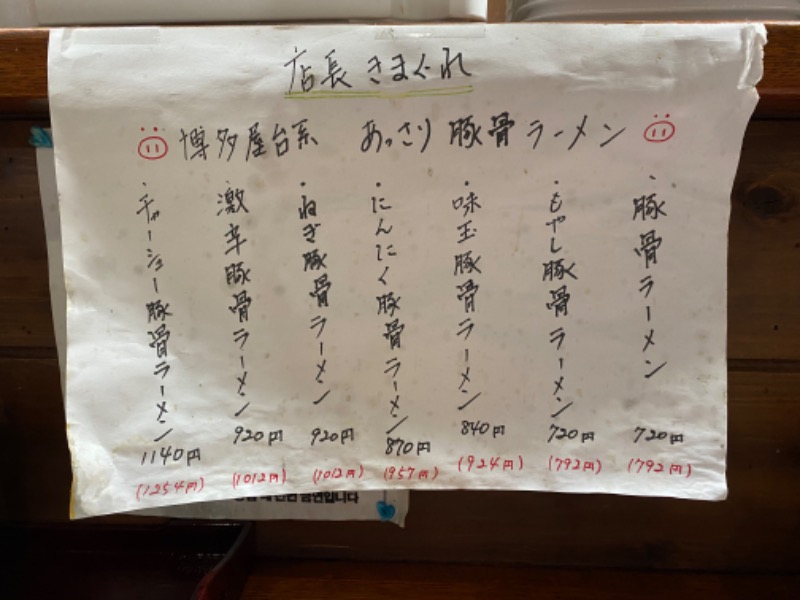 店長きまぐれ
博多屋台系 あっさり豚骨ラーメン
・豚骨ラーメン 720円 (792円)
・もやし豚骨ラーメン 720円 (792円)
・味玉豚骨ラーメン 840円 (924円)
・にんにく豚骨ラーメン 870円 (957円)
・ねぎ豚骨ラーメン 920円 (1012円)
・激辛豚骨ラーメン 920円 (1012円)
・チャーシュー豚骨ラーメン 1140円 (1254円)
금연입니다